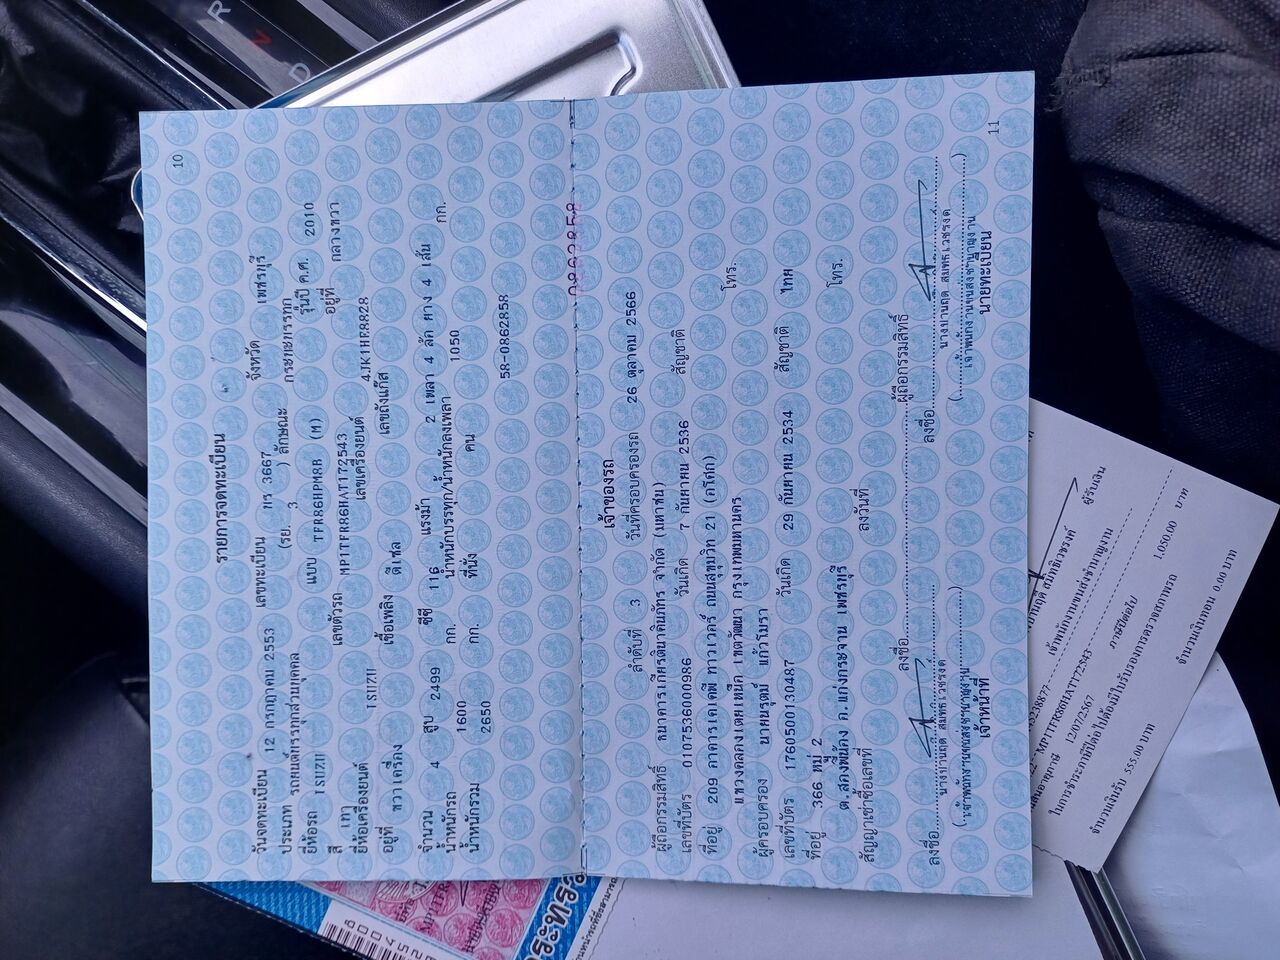 10
รายการจดทะเบียน
วันจดทะเบียน 12 กรกฎาคม 2553 เลขทะเบียน 3667 จังหวัด เพชรบุรี
ประเภท รถยนต์บรรทุกส่วนบุคคล (รย. 3 ) ลักษณะ กระบะบรรทุก
ยี่ห้อรถ ISUZU แบบ TFR86HPM8B (M) รุ่นปี ค.ศ. 2010
สี เทา เลขตัวรถ MP1TFR86HAT172543 อยู่ที่ กลางขวา
ยี่ห้อเครื่องยนต์ ISUZU เลขเครื่องยนต์ 4JK1HE8828
อยู่ที่ ขวาเครื่อง เชื้อเพลิง ดีเซล เลขถังแก๊ส
จำนวน 4 สูบ 2499 ซีซี 116 แรงม้า 2 เพลา 4 ล้อ ยาง 4 เส้น
น้ำหนักรถ 1600 กก. น้ำหนักบรรทุก/น้ำหนักลงเพลา 1050 กก.
น้ำหนักรวม 2650 กก. ที่นั่ง คน
58-0862858
0862858
เจ้าของรถ
ลำดับที่ 3 วันที่ครอบครองรถ 26 ตุลาคม 2566
ผู้ถือกรรมสิทธิ์ ธนาคารเกียรตินาคินภัทร จำกัด (มหาชน)
เลขที่บัตร 0107536000986 วันเกิด 7 กันยายน 2536 สัญชาติ
ที่อยู่ 209 อาคารเคเคพี ทาวเวอร์ ถนนสุขุมวิท 21 (อโศก)
แขวงคลองเตยเหนือ เขตวัฒนา กรุงเทพมหานคร โทร.
ผู้ครอบครอง นายนรุตม์ แก้วโมรา
เลขที่บัตร 1760500130487 วันเกิด 29 กันยายน 2534 สัญชาติ ไทย
ที่อยู่ 366 หมู่ 2
ต.สองพี่น้อง อ.แก่งกระจาน เพชรบุรี โทร.
สัญญาเช่าซื้อเลขที่ ลงวันที่
ลงชื่อ ผู้ถือกรรมสิทธิ์
ลงชื่อ ลงชื่อ
เจ้าหน้าที่ นายทะเบียน
11
ผู้รับเงิน
เจ้าพนักงานขนส่งชำนาญงาน
MP1TFR86HAT172543
12/07/2567 ภาษีปีต่อไป 1,050.00 บาท
ในการชำระภาษีปีต่อไปต้องมีใบรับรองการตรวจสภาพรถ
จำนวนเงินรับ 555.00 บาท จำนวนเงินทอน 0.00 บาท
R
N
D